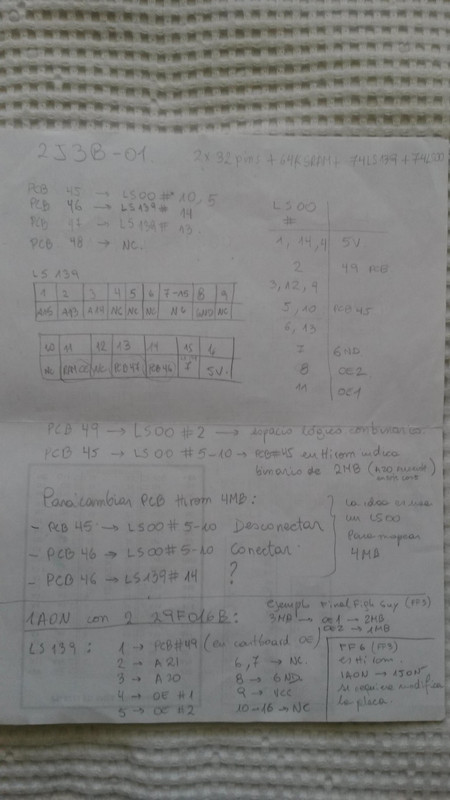 2J3B-01.
2 x 32 pins + 64K SRAM + 74LS139 + 74LS00
PCB 45 → LS00 # 10, 5
PCB 46 → LS139 # 14
PCB 47 → LS139 # 13
PCB 48 → NC.
LS00
#
1, 14, 4 5V
2 49 PCB
3, 12, 9
5, 10 PCB 45
6, 13
7 GND
8 OE2
11 OE1
LS 139
1 2 3 4 5 6 7-15 8 9
A15 A13 A14 NC NC NC NC GND NC
10 11 12 13 14 15
NC NC PCB 47 PCB 46 5V
PCB 49 → LS00 # 2 → espacio lógico cartuchos
PCB 45 → LS00 # 5-10 → PCB #45 en Hirom indica
binarios de 2MB (A20
Para cambiar PCB Hirom 4MB:
- PCB 45 → LS00 # 5-10 Desconectar
- PCB 46 → LS00 # 5-10 Conectar.
- PCB 46 → LS139 # 14 ?
La idea es usar
un LS00
Para mapear
4MB
1AON con 2 29F016B:
ejemplo Final Fight Guy (FF3)
3MB → OE1 → 2MB
OE2 → 1MB
LS 139: 1 → PCB #49 (en cartboard OE)
2 → A21
3 → A20
4 → OE #1
5 → OE #2
6, 7 → NC.
8 → GND.
9 → VCC
10-16 → NC
FF6 (FF3)
es Hirom.
1AON → 1JON
se requiere modificar
la placa.